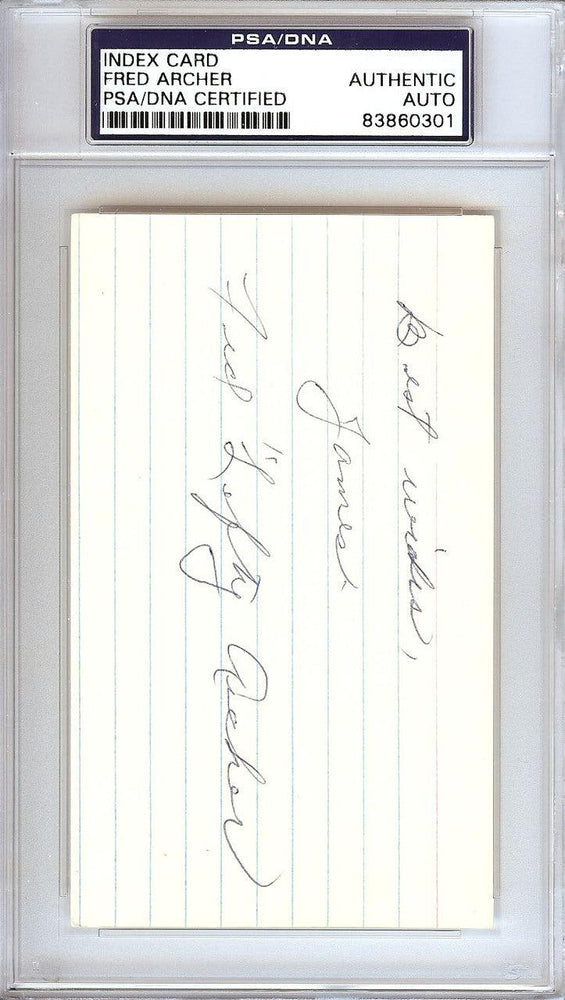 PSA/DNA
INDEX CARD
FRED ARCHER
PSA/DNA CERTIFIED
AUTHENTIC
AUTO
83860301
Best wishes,
James
Fred "Lefty Archer